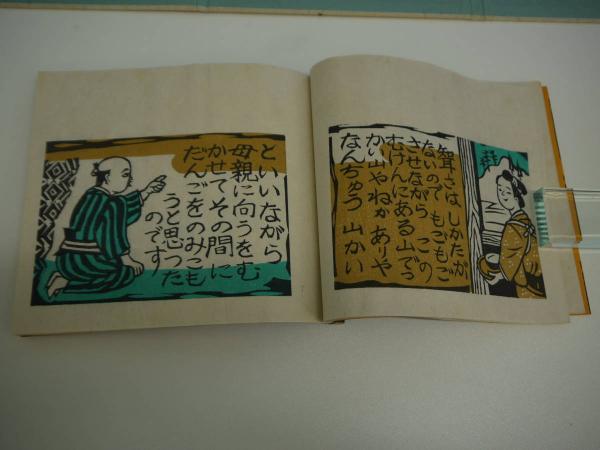 聟さは しかたが
ないので もごもご
させながら この
むけんにある山でっ
かい山やねか ありゃ
なんちゅう 山かい
といいながら
母親に向うをむ
かせてその間に
だんごをのみこも
うと思った
のです